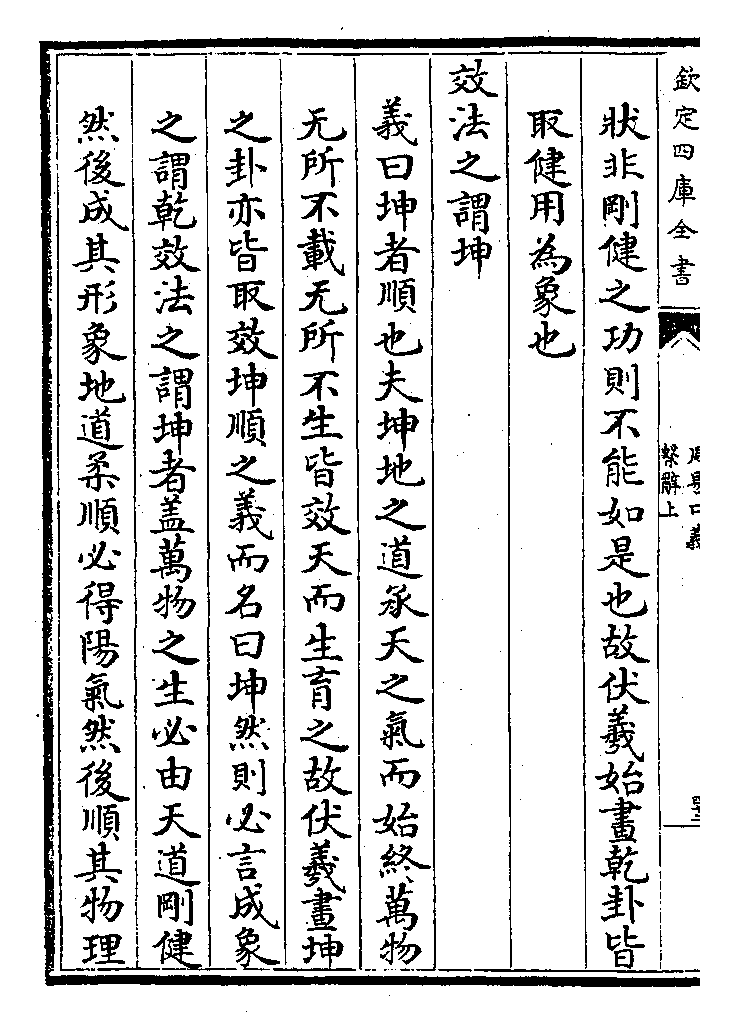 欽定四庫全書
周易口義
繫辭上
狀非剛健之功則不能如是也故伏羲始畫乾卦皆
取健用為象也
效法之謂坤
義曰坤者順也夫坤地之道承天之氣而始終萬物
无所不載无所不生皆效天而生育之故伏羲畫坤
之卦亦皆取效坤順之義而名曰坤然則必言成象
之謂乾效法之謂坤者盖萬物之生必由天道剛健
然後成其形象地道柔順必得陽氣然後順其物理